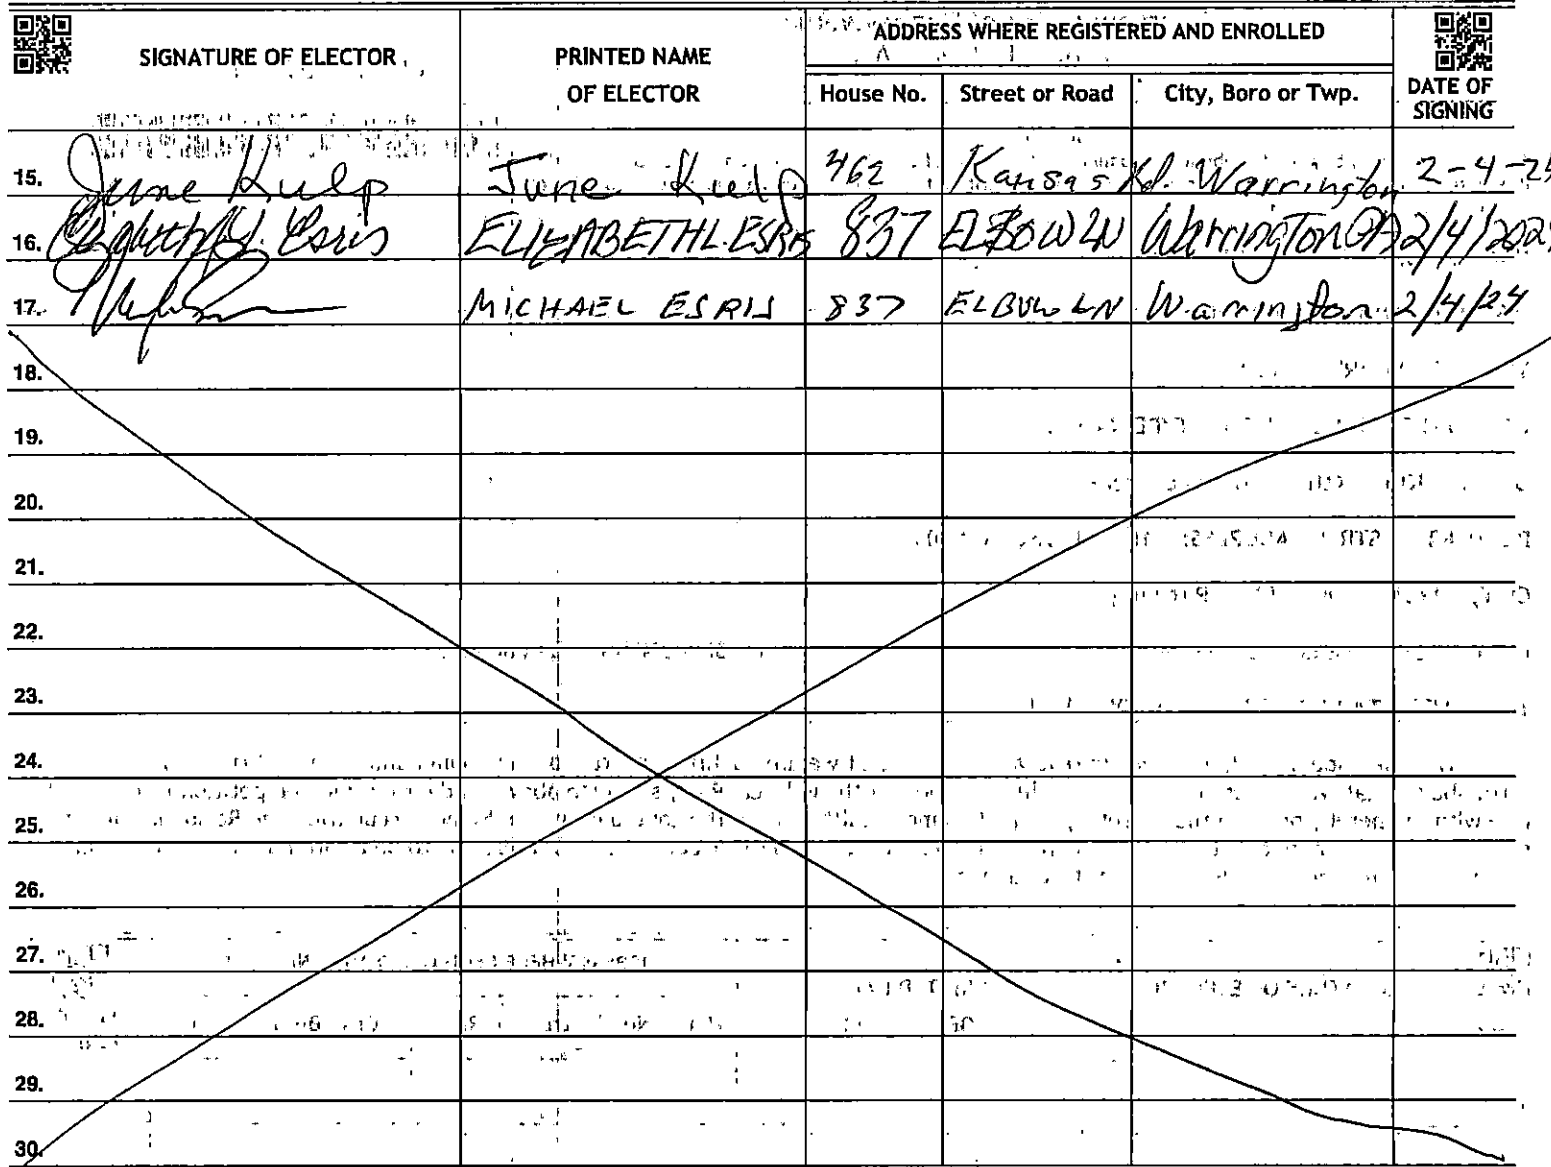 SIGNATURE OF ELECTOR PRINTED NAME OF ELECTOR ADDRESS WHERE REGISTERED AND ENROLLED DATE OF SIGNING
House No. Street or Road City, Boro or Twp.
15. June Kulp June Kulp 462 Kansas Rd. Warrington 2-4-24
16. Elizabeth L. Esris ELIZABETH L. ESRIS 837 ELBOW LN Warrington PA 2/4/202
17. MICHAEL ESRIS 837 ELBOW LN Warrington 2/4/24
18.
19.
20.
21.
22.
23.
24.
25.
26.
27.
28.
29.
30.